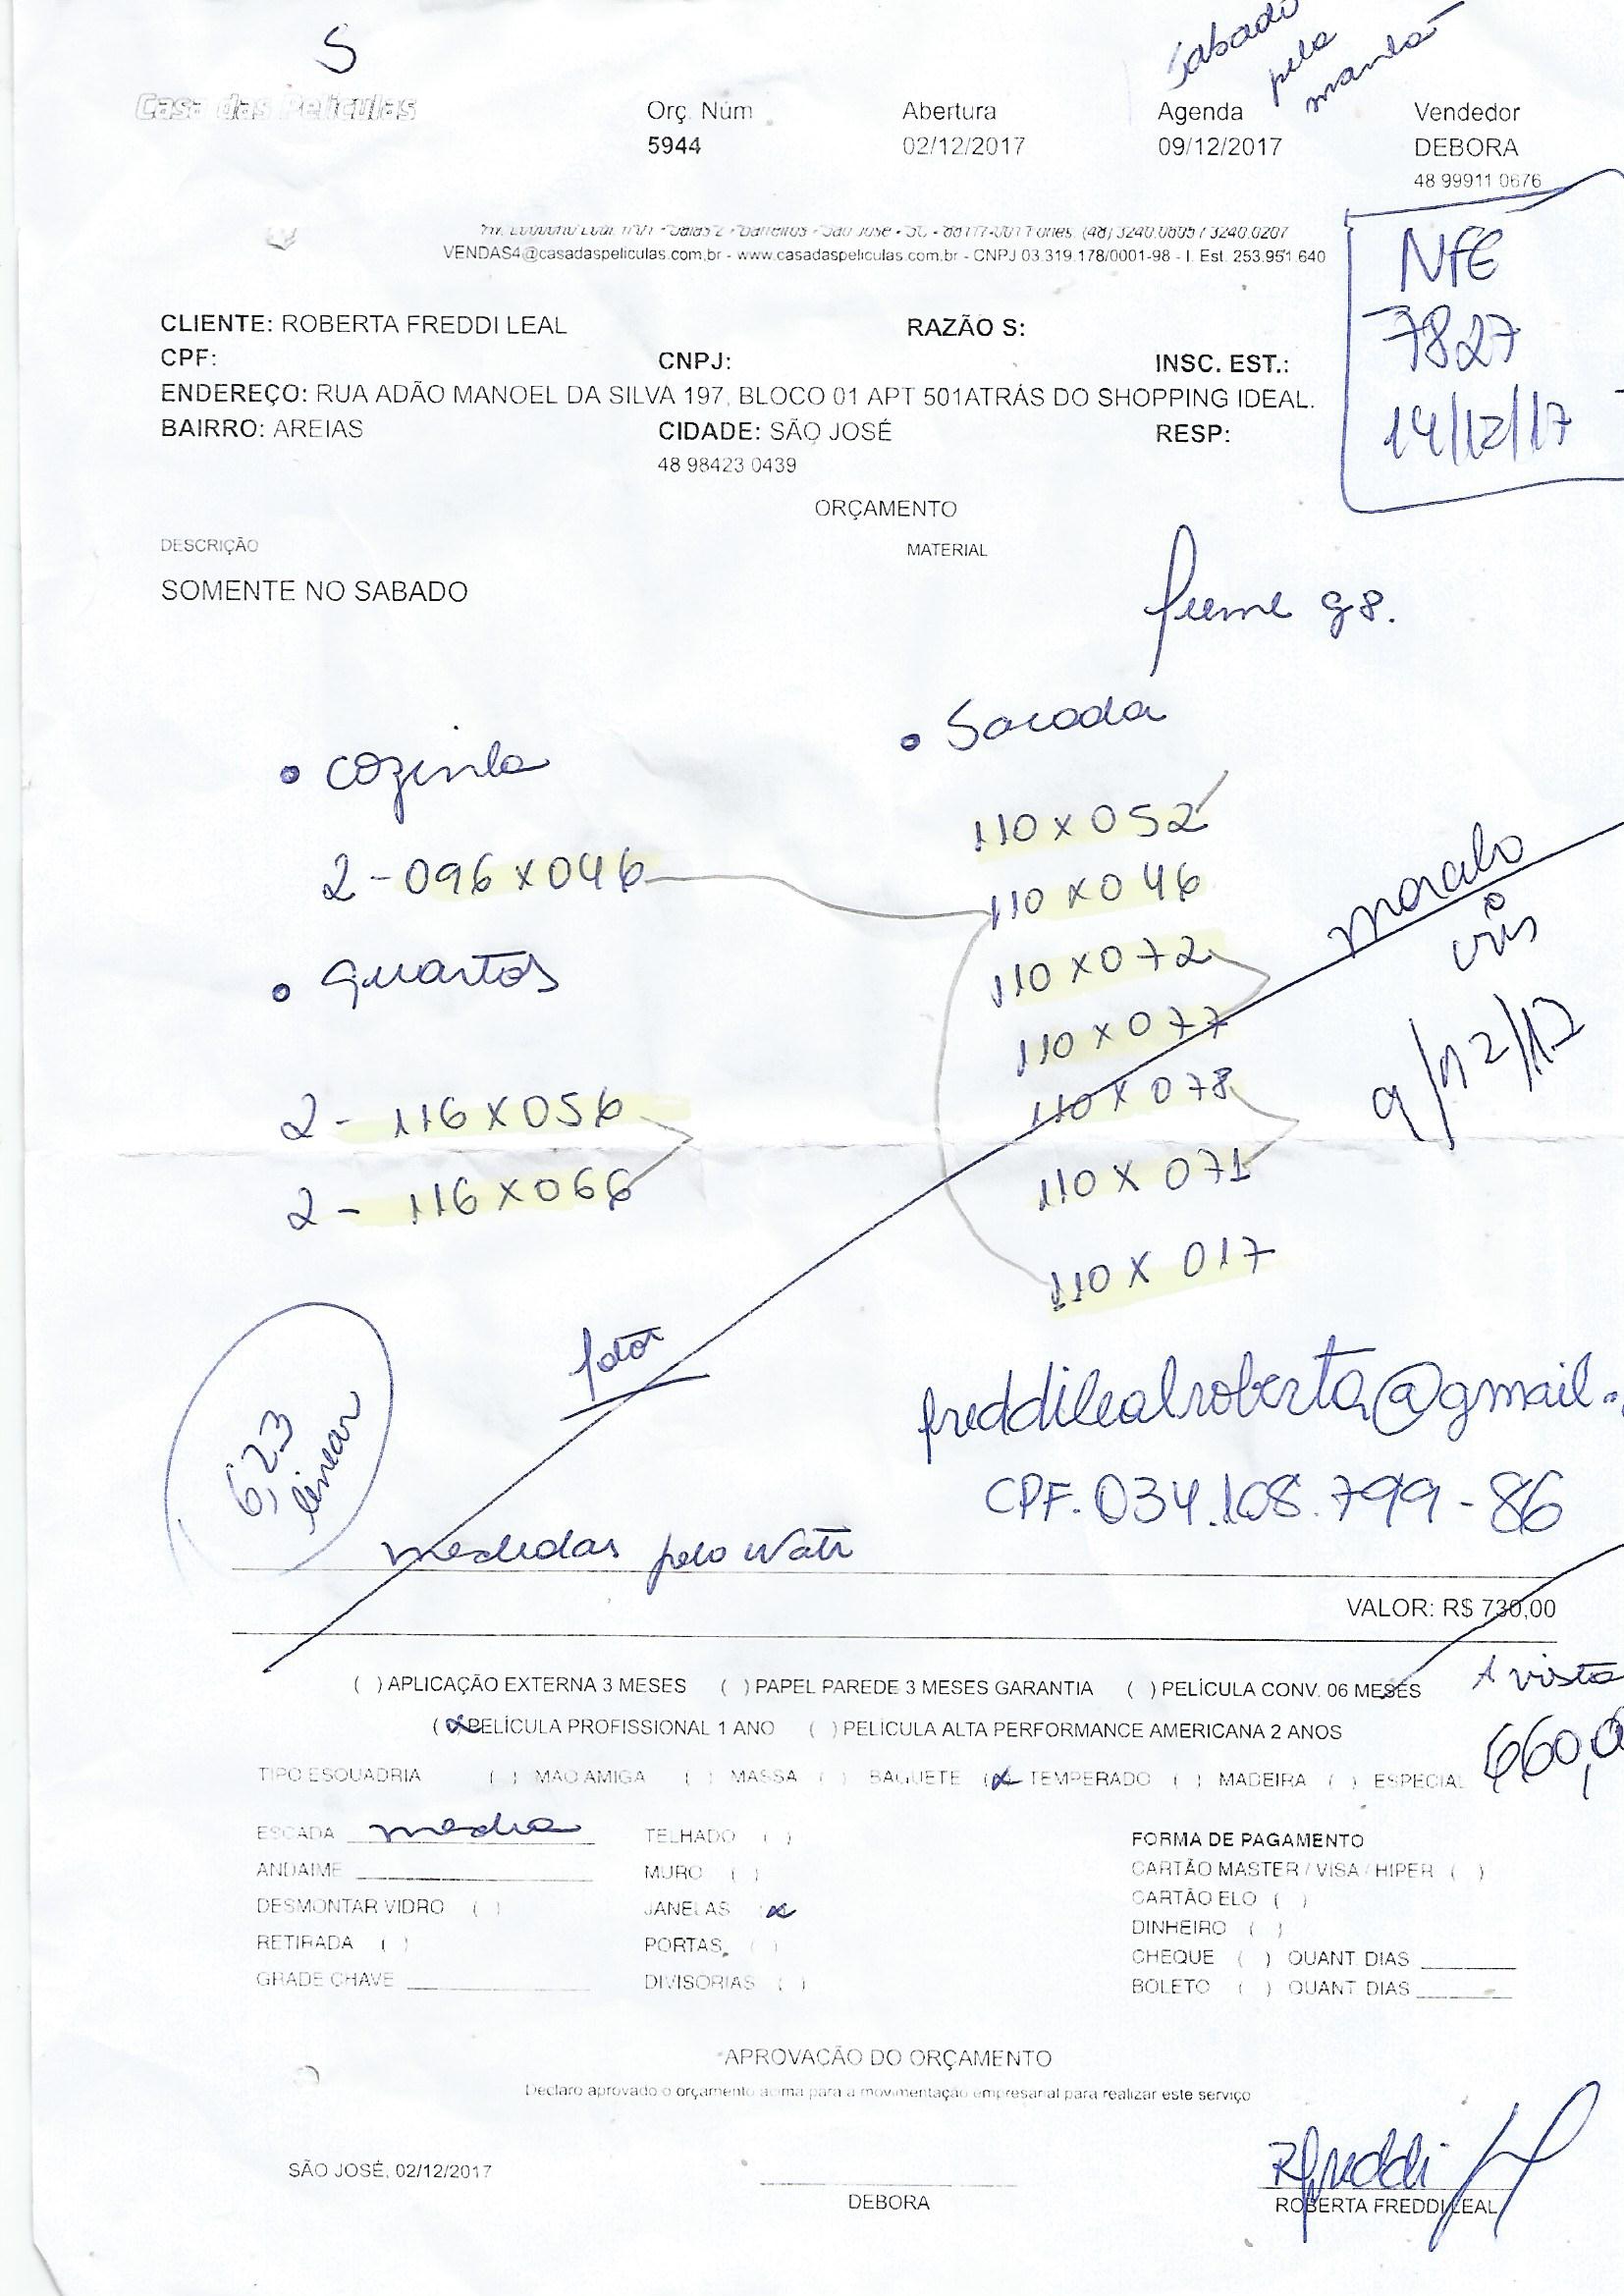 S
Sabado
pela
manhã
Casa das Películas
Orç. Núm Abertura Agenda Vendedor
5944 02/12/2017 09/12/2017 DEBORA
48 99911 0676
VENDAS4@casadaspeliculas.com.br - www.casadaspeliculas.com.br - CNPJ 03.319.178/0001-98 - I. Est. 253.951.640
NFE
7827
14/12/17
CLIENTE: ROBERTA FREDDI LEAL RAZÃO S:
CPF: CNPJ: INSC. EST.:
ENDEREÇO: RUA ADÃO MANOEL DA SILVA 197, BLOCO 01 APT 501ATRÁS DO SHOPPING IDEAL.
BAIRRO: AREIAS CIDADE: SÃO JOSÉ RESP:
48 98423 0439
ORÇAMENTO
DESCRIÇÃO MATERIAL
SOMENTE NO SABADO
fume g8.
• cozinha
2 - 096 x 046
• quartos
2 - 116 x 056
2 - 116 x 066
• Sacada
110 x 052
110 x 046
110 x 072
110 x 077
110 x 078
110 x 071
110 x 017
9/12/17
6,23
linear
freddilealroberta@gmail.
CPF. 034.108.799-86
medidas pelo
VALOR: R$ 730,00
( ) APLICAÇÃO EXTERNA 3 MESES ( ) PAPEL PAREDE 3 MESES GARANTIA ( ) PELÍCULA CONV. 06 MESES
A vista
(x) PELÍCULA PROFISSIONAL 1 ANO ( ) PELÍCULA ALTA PERFORMANCE AMERICANA 2 ANOS
660,0
TIPO ESQUADRIA ( ) MAO AMIGA ( ) MASSA ( ) BAGUETE (x) TEMPERADO ( ) MADEIRA ( ) ESPECIAL
ESCADA media TELHADO ( ) FORMA DE PAGAMENTO
ANDAIME MURO ( ) CARTÃO MASTER / VISA / HIPER ( )
DESMONTAR VIDRO ( ) JANELAS x CARTÃO ELO ( )
RETIRADA ( ) PORTAS ( ) DINHEIRO ( )
GRADE CHAVE DIVISORIAS ( ) CHEQUE ( ) QUANT DIAS
BOLETO ( ) QUANT DIAS
APROVAÇÃO DO ORÇAMENTO
Declaro aprovado o orçamento acima para a movimentação empresarial para realizar este serviço
SÃO JOSÉ, 02/12/2017
DEBORA
RFreddi
ROBERTA FREDDI LEAL